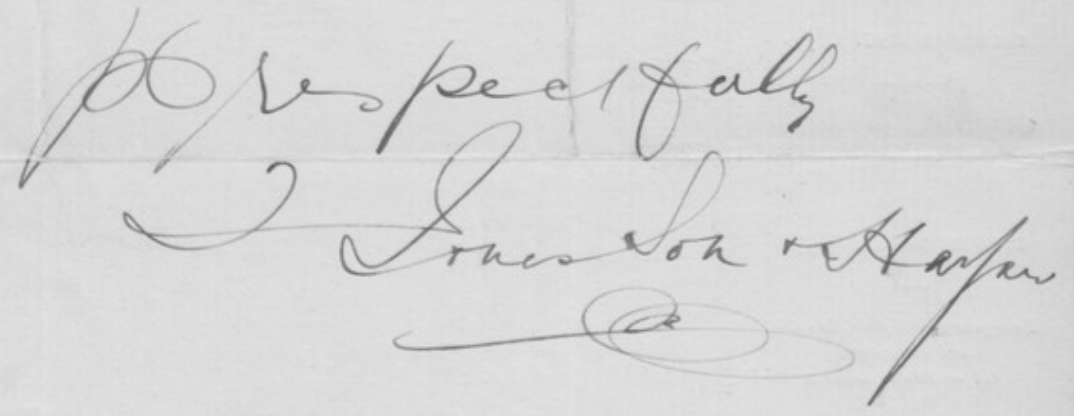 respectfully
Jones Son & Harper